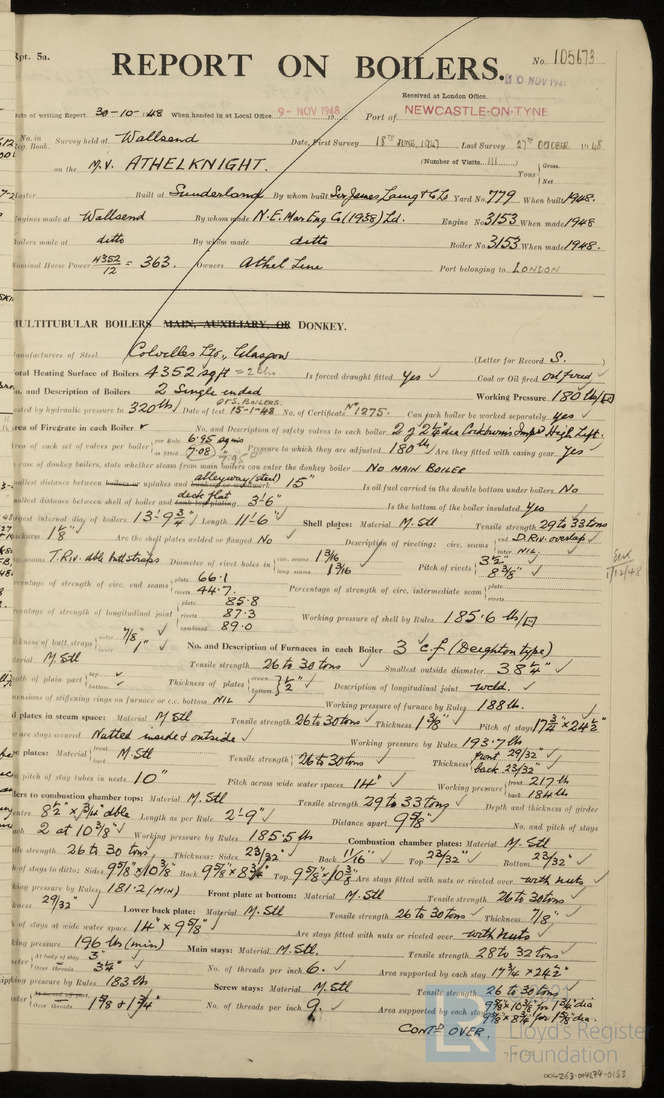 Rpt. 5a.
REPORT ON BOILERS.
No. 105673
10 NOV 194
Received at London Office
of writing Report 30-10-1948 When handed in at Local Office 9-NOV 1948 Port of NEWCASTLE-ON-TYNE
No. in Survey held at Wallsend Date, First Survey 18TH JUNE, 1947 Last Survey 27TH OCTOBER 1948
Reg. Book.
on the M.V. ATHELKNIGHT. (Number of Visits 111) Tons Gross Net
Built at Sunderland By whom built Sir James Laing & Co Ld Yard No. 779 When built 1948.
Engines made at Wallsend By whom made N.E. Mar Eng Co (1938) Ld. Engine No. 3153 When made 1948
Boilers made at ditto By whom made ditto Boiler No. 3153 When made 1948.
Nominal Horse Power 4352/12 = 363. Owners Athel Line Port belonging to LONDON
MULTITUBULAR BOILERS MAIN, AUXILIARY, OR DONKEY.
Manufacturers of Steel Colvilles Ltd., Glasgow (Letter for Record S.)
Total Heating Surface of Boilers 4352 sq ft = 2 Is forced draught fitted Yes Coal or Oil fired oil fired
No. and Description of Boilers 2 Single ended Working Pressure 180 lbs/□
Tested by hydraulic pressure to 320 lbs Date of test 15-1-48 No. of Certificate No 1275. Can each boiler be worked separately yes
Area of Firegrate in each Boiler No. and Description of safety valves to each boiler 2 of 2 1/8" dia Cockburns Impd High Lift.
Area of each set of valves per boiler per Rule 6.95 sq ins as fitted 7.08 Pressure to which they are adjusted 180 lb Are they fitted with easing gear Yes
In case of donkey boilers, state whether steam from main boilers can enter the donkey boiler NO MAIN BOILER
Smallest distance between boilers or uptakes and alleyway (steel) 15" Is oil fuel carried in the double bottom under boilers No
Smallest distance between shell of boiler and deck flat 3'-6" Is the bottom of the boiler insulated Yes
Largest internal dia. of boilers 13'-9 3/4" Length 11'-6 Shell plates: Material M. Stl Tensile strength 29 to 33 tons
Thickness 1 1/8" Are the shell plates welded or flanged No Description of riveting: circ. seams end D. Riv. overlap inter. NIL
long. seams T. Riv. dble butt straps Diameter of rivet holes in circ. seams 1 3/16 long. seams 1 3/16 Pitch of rivets 3 1/2" 8 3/8"
Percentage of strength of circ. end seams plate 66.1 rivets 44.7. Percentage of strength of circ. intermediate seam plate rivets
Percentage of strength of longitudinal joint plate 85.8 rivets 87.3 combined 89.0 Working pressure of shell by Rules 185.6 lb/□
Thickness of butt straps outer 7/8" inner 1" No. and Description of Furnaces in each Boiler 3 c.f (Deighton type)
Material M. Stl Tensile strength 26 to 30 tons Smallest outside diameter 38 1/4"
Length of plain part top bottom Thickness of plates crown bottom 1/2" Description of longitudinal joint weld.
Dimensions of stiffening rings on furnace or c.c. bottom NIL Working pressure of furnace by Rules 188 lb.
End plates in steam space: Material M Stl Tensile strength 26 to 30 tons Thickness 1 3/8" Pitch of stays 17 3/4" x 24 1/2"
How are stays secured Nutted inside & outside Working pressure by Rules 193.7 lb
Tube plates: Material front back M. Stl Tensile strength 26 to 30 tons Thickness front 29/32" back 23/32"
Mean pitch of stay tubes in nests 10" Pitch across wide water spaces 14" Working pressure front 217 lb back 184 lb
Girders to combustion chamber tops: Material M. Stl Tensile strength 29 to 33 tons Depth and thickness of girder
at centre 8 1/2" x 3/4" dble Length as per Rule 2'-9" Distance apart 9 5/8" No. and pitch of stays
in each 2 at 10 3/8" Working pressure by Rules 185.5 lb Combustion chamber plates: Material M. Stl
Tensile strength 26 to 30 tons Thickness: Sides 23/32" Back 11/16" Top 23/32" Bottom 23/32"
Pitch of stays to ditto: Sides 9 5/8" x 10 3/8" Back 9 7/8" x 8 3/4" Top 9 5/8" x 10 3/8 Are stays fitted with nuts or riveted over with nuts
Working pressure by Rules 181.2 (MIN) Front plate at bottom: Material M. Stl Tensile strength 26 to 30 tons
Thickness 29/32" Lower back plate: Material M. Stl Tensile strength 26 to 30 tons Thickness 7/8"
Pitch of stays at wide water space 14" x 9 5/8" Are stays fitted with nuts or riveted over with nuts
Working pressure 196 lb (min) Main stays: Material M. Stl. Tensile strength 28 to 32 tons
Diameter At body of stay 3" Over threads 3 1/4" No. of threads per inch 6. Area supported by each stay 17 3/4 x 24 1/2"
Working pressure by Rules 183 lb Screw stays: Material M. Stl Tensile strength 26 to 30 tons
Diameter Over threads 1 5/8 & 1 3/4" No. of threads per inch 9. Area supported by each stay 9 5/8" x 10 3/8 for 1 3/4" dia
9 7/8 x 8 3/4 for 1 5/8 dia.
CONTD OVER.
1/12/48
Lloyd's Register
Foundation
004263-004274-0153